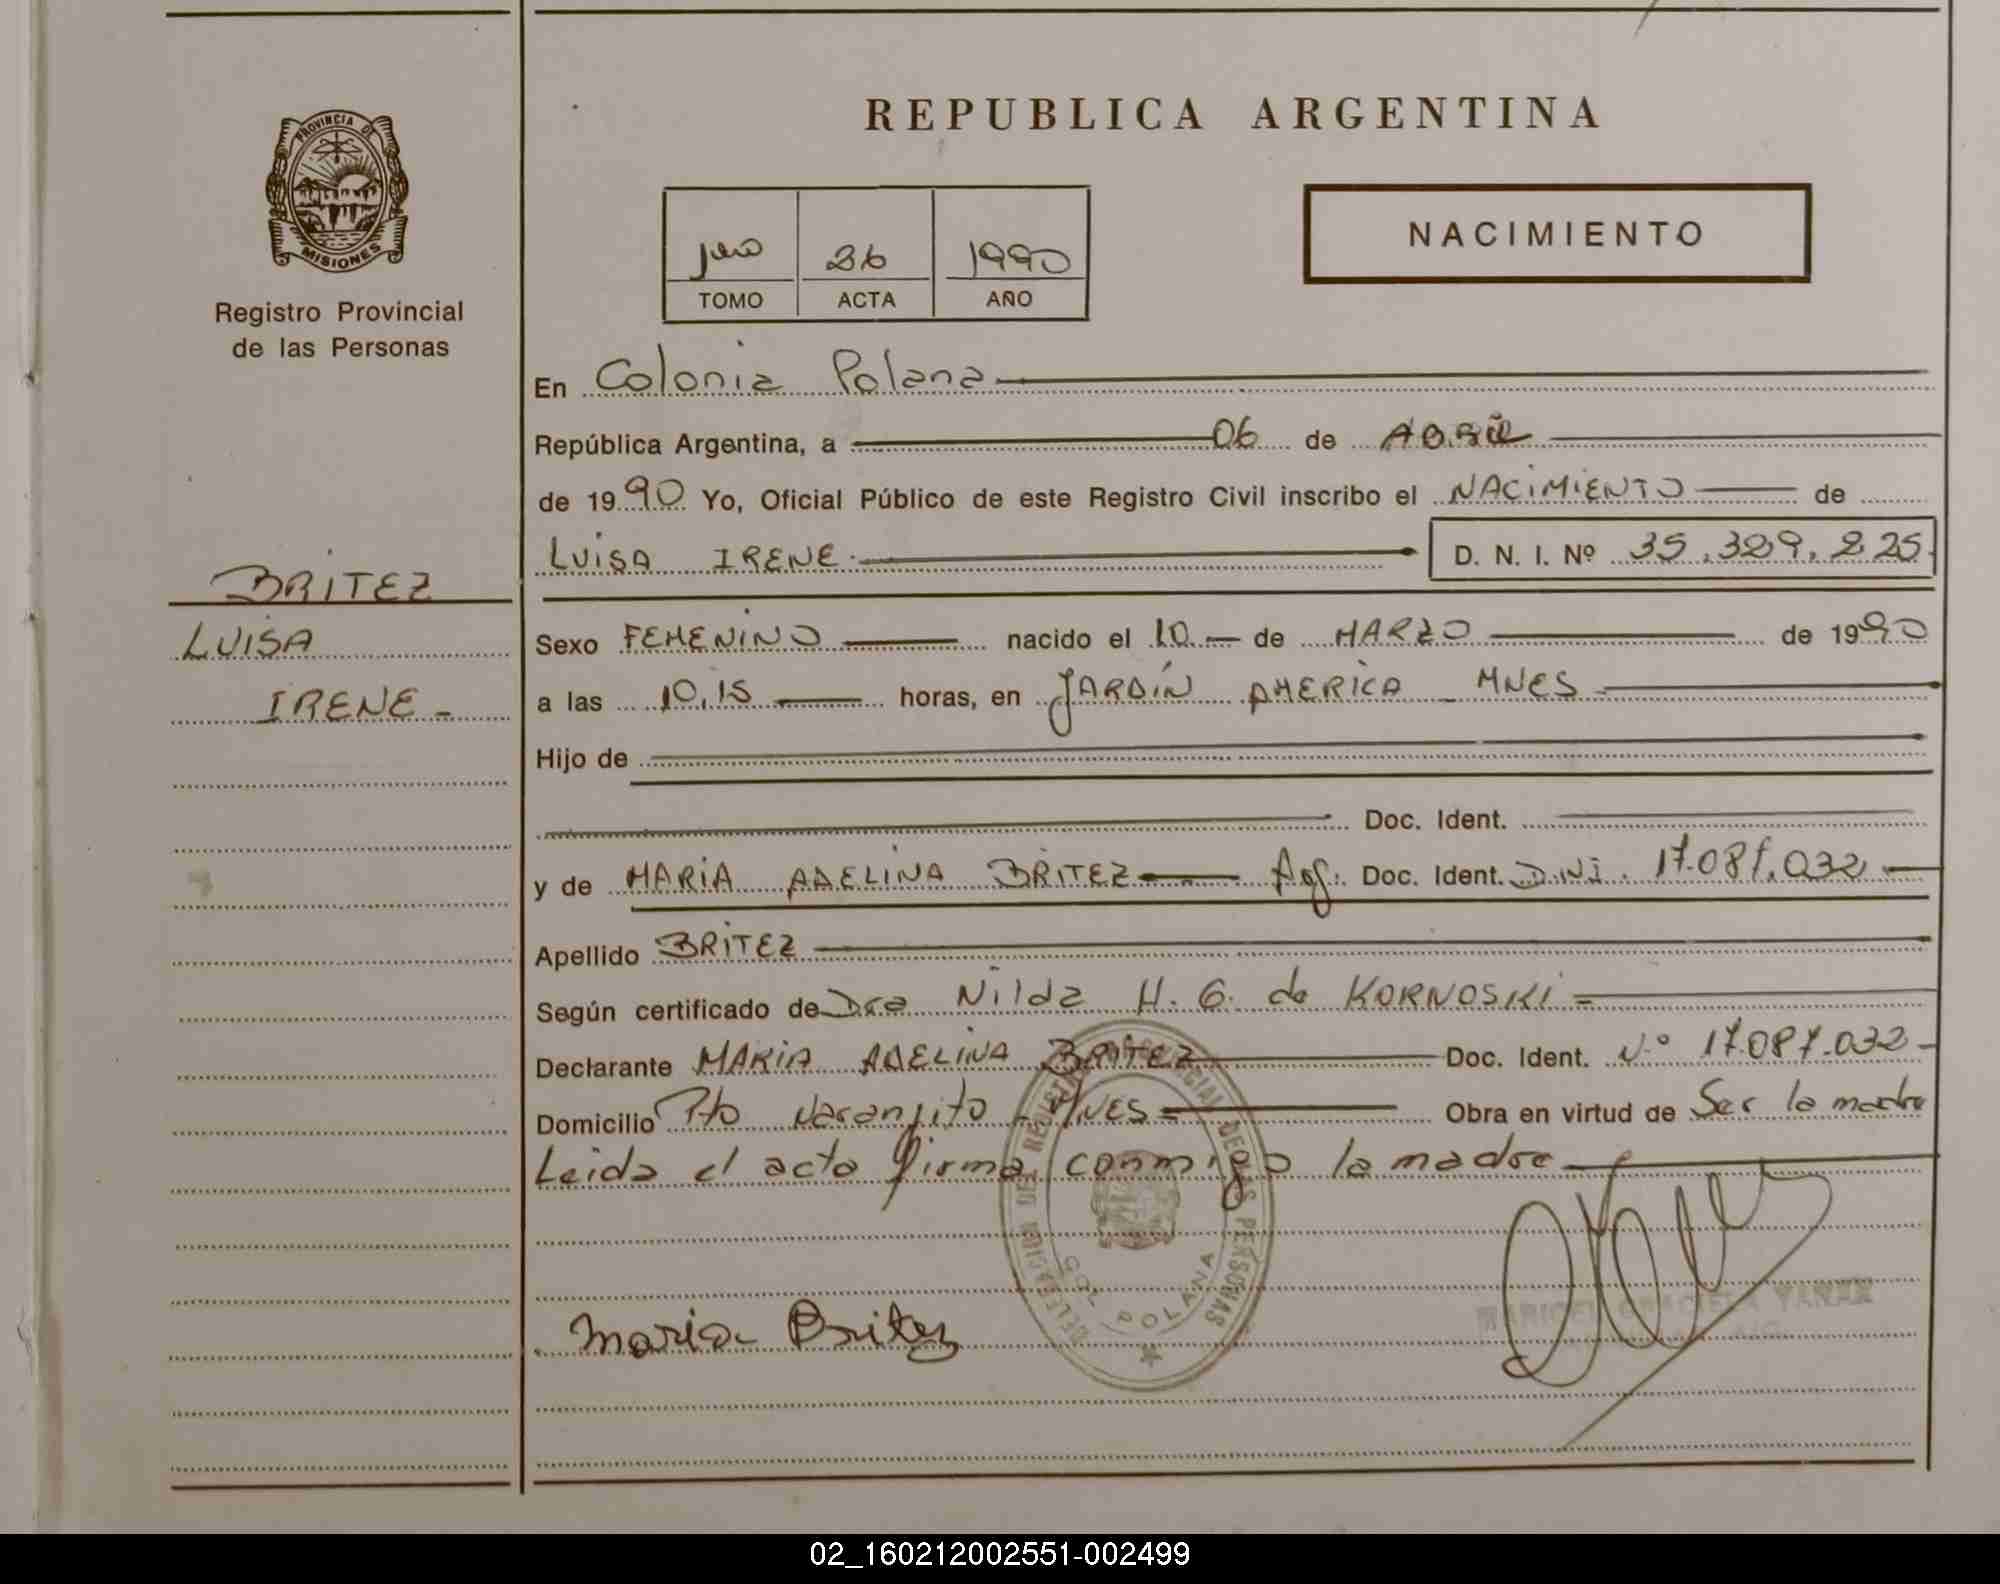 REPUBLICA ARGENTINA
PROVINCIA DE
MISIONES
Registro Provincial
de las Personas
BRITEZ
LUISA
IRENE -
1990
TOMO ACTA AÑO
NACIMIENTO
En Colonia Polana
República Argentina, a 06 de ABRIL
de 1990 Yo, Oficial Público de este Registro Civil inscribo el NACIMIENTO de
LUISA IRENE D. N. I. Nº 35.329.225
Sexo FEMENINO nacido el 10 de MARZO de 1990
a las 10,15 horas, en JARDÍN AMERICA - MNES
Hijo de
Doc. Ident.
y de MARIA ADELINA BRITEZ Arg. Doc. Ident. D.N.I. 17.087.032
Apellido BRITEZ
Según certificado de Dra Nilda H. G. de KORNOSKI =
Declarante MARIA ADELINA BRITEZ Doc. Ident. N.º 17.087.032 -
Domicilio Pto Naranjito - MNES = Obra en virtud de Ser la madre
Leida el acta firma conmigo la madre
DELEGACION DEL REGISTRO PROVINCIAL DE LAS PERSONAS
POLANA
Maria Britez
MARICEL GRACIELA
02_160212002551-002499